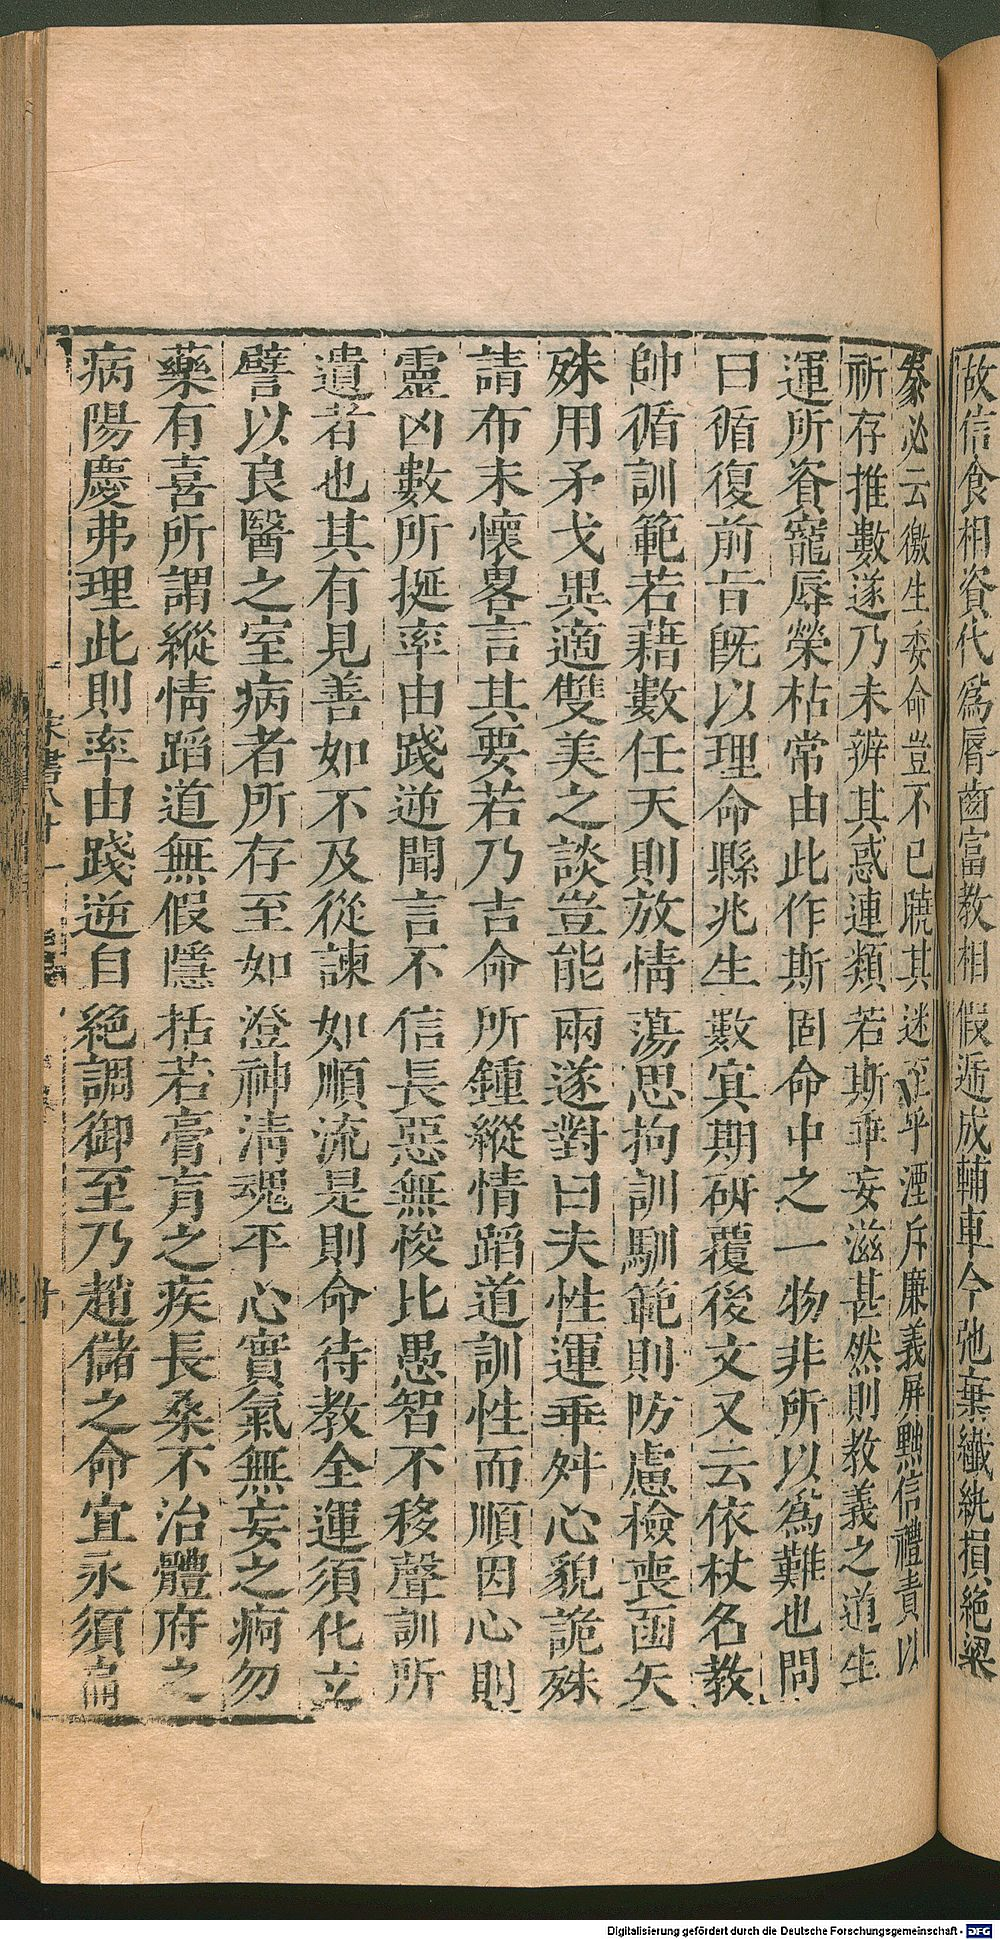 故信食相資代爲脣齒富教相假遞成輔車今弛棄纖紈損絕粱
豢必云徼生委命豈不已曉其迷至乎湮斥廉義屏黜信禮責以
祈存推數遂乃未辨其惑連類若斯乖妄滋甚然則教義之道生
運所資寵辱榮枯常由此作斯固命中之一物非所以爲難也問
曰循復前旨旣以理命縣兆生數㝠期硏覆後文又云依杖名教
帥循訓範若藉數任天則放情蕩思拘訓馴範則防慮檢喪函矢
殊用矛戈異適雙美之談豈能兩遂對曰夫性運乖舛心貌詭殊
請布末懷畧言其要若乃吉命所鍾縱情蹈道訓性而順因心則
靈凶數所挻率由踐逆聞言不信長惡無悛比愚智不移聲訓所
遺者也其有見善如不及從諫如順流是則命待教全運須化立
譬以良醫之室病者所存至如澄神淸魂平心實氣無妄之痾勿
藥有喜所謂縱情蹈道無假隱括若膏肓之疾長桑不治體府之
病陽慶弗理此則率由踐逆自絕調御至乃趙儲之命宜永須扁
宋書八十一
廿
Digitalisierung gefördert durch die Deutsche Forschungsgemeinschaft - DFG